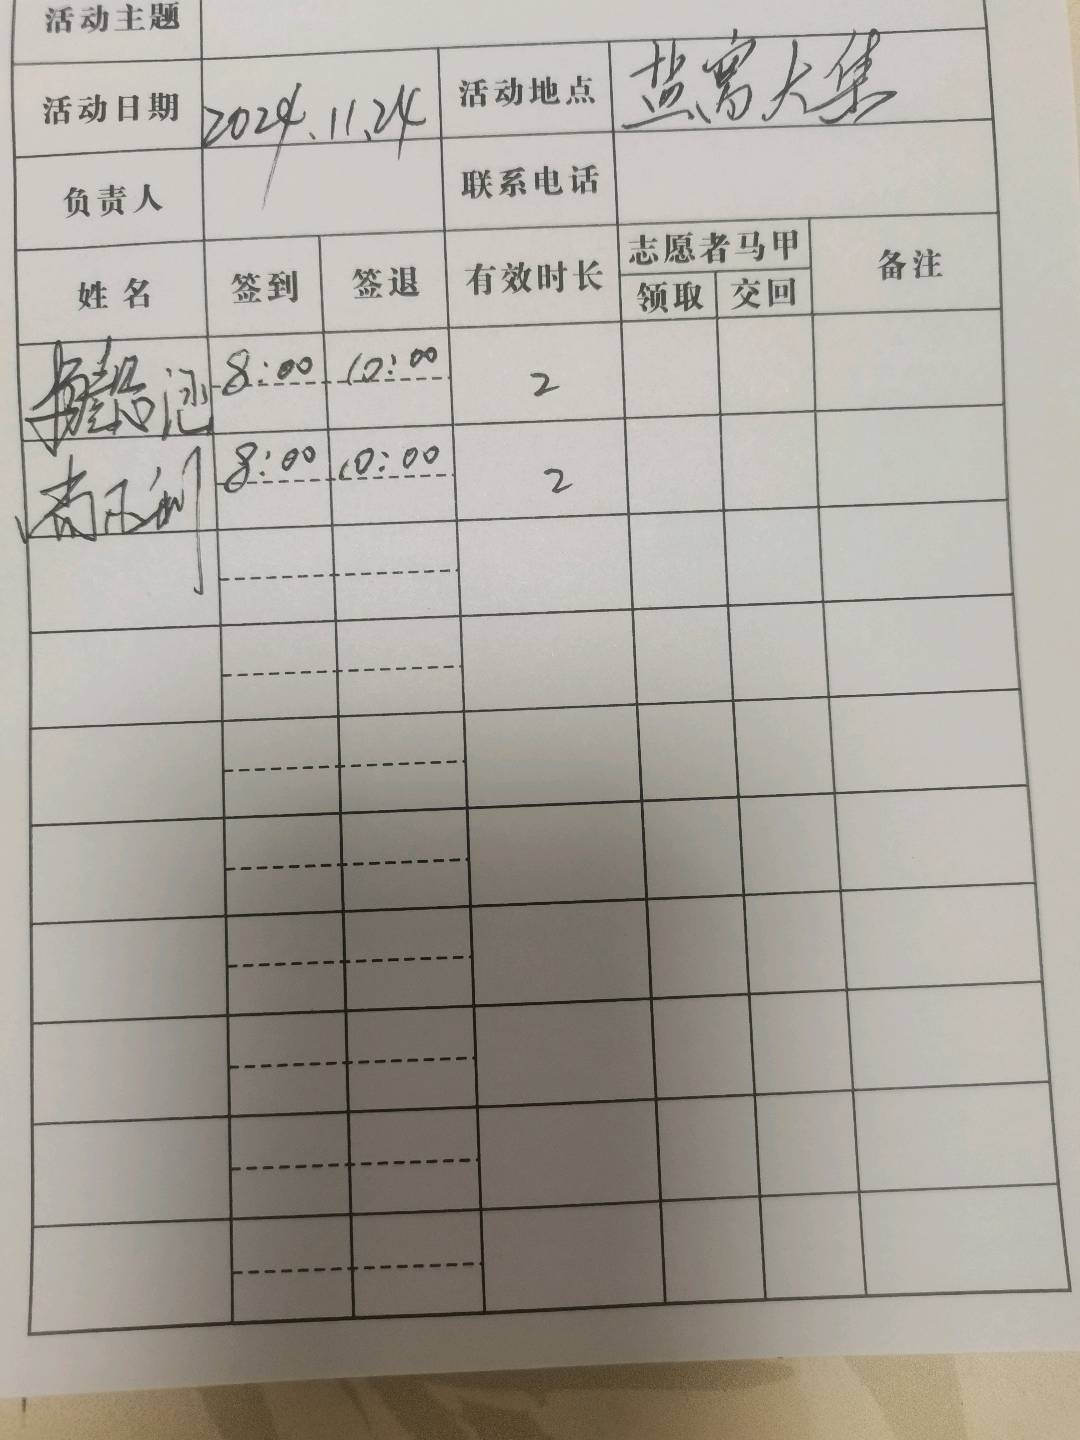 活动主题
活动日期 2024.11.24 活动地点 盐窝大集
负责人 联系电话
姓名 签到 签退 有效时长 志愿者马甲 备注
领取 交回
8:00 10:00 2
8:00 10:00 2